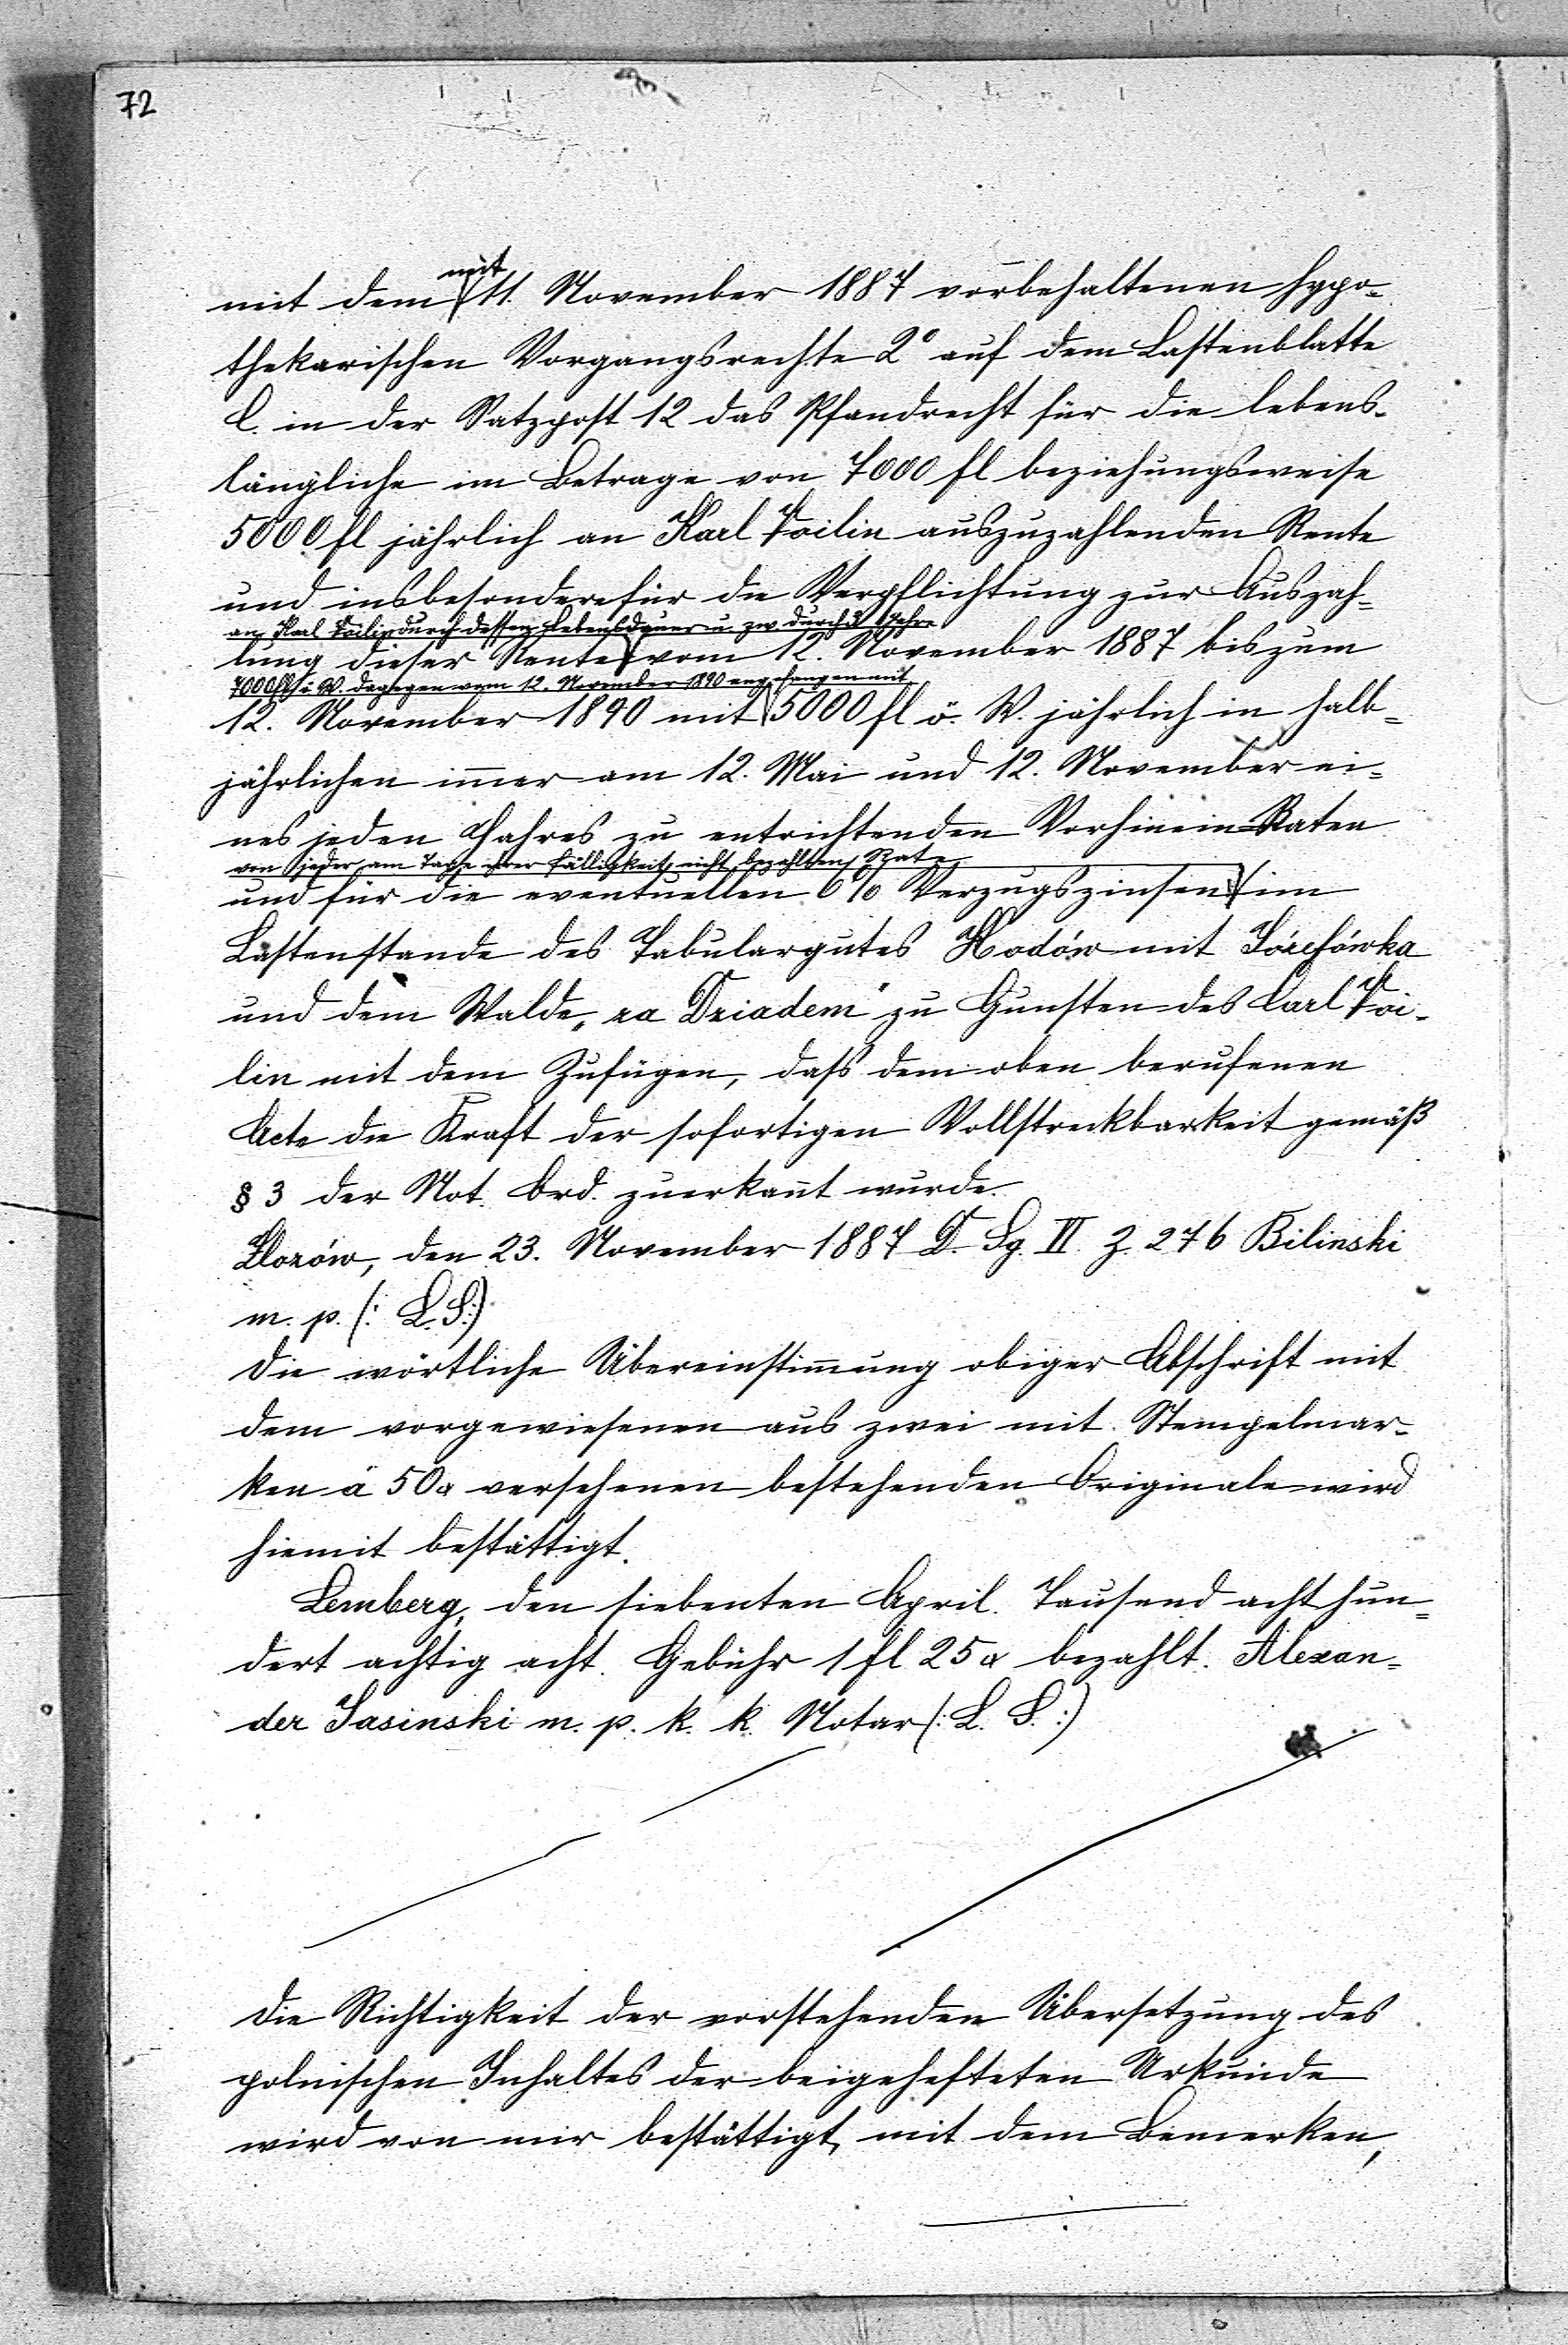 72
mit
mit dem 11. November 1887 vorbehaltenen hypo-
thekarischen Vorgangsrechte 2° auf dem Lastenblatte
C. in der Satzpost 12 das Pfandrecht für die lebens-
längliche im Betrage von 7000 fl beziehungsweise
5000 fl jährlich an Karl Poilin auszuzahlenden Rente
und insbesondere für die Verpflichtung zur Auszah-
an Karl Poilin durch dessen Lebensdauer u. zw. durch 3 Jahre
lung dieser Rente vom 12. November 1887 bis zum
7000 fl ö. W. dagegen vom 12. November 1890 angefangen mit
12. November 1890 mit 5000 fl ö. W. jährlich in halb-
jährlichen im̄er am 12. Mai und 12. November ei-
nes jeden Jahres zu entrichtenden Vorhinein-Raten
von jeder am Tage ihrer Fälligkeit nicht bezahlten Rate
und für die eventuellen 6% Verzugszinsen im
Lastenstande des Tabulargutes Hodów mit Józefówka
und dem Walde „za Dziadem" zu Gunsten des Carl Poi-
lin mit dem Zufügen, daß dem oben berufenen
Acte die Kraft der sofortigen Vollstreckbarkeit gemäß
§ 3 der Not. Ord. zuerkan̄t wurde.
Złoczów, den 23. November 1887 D. Sg. VI. Z. 276 Bilinski
m. p. (: L. S.:)
Die wörtliche Übereinstim̄ung obiger Abschrift mit
dem vorgewiesenen aus zwei mit Stempelmar-
ken á 50 x versehenen bestehenden Originale wird
hiemit bestättigt.
Lemberg, den siebenten April. Tausend acht hun-
dert achtig acht. Gebühr 1 fl 25 x bezahlt. Alexan-
der Jasinski m. p. k. k. Notar (: L. S. :)
Die Richtigkeit der vorstehenden Übersetzung des
polnischen Inhaltes der beigehefteten Urkunde
wird von mir bestättigt, mit dem Bemerken,